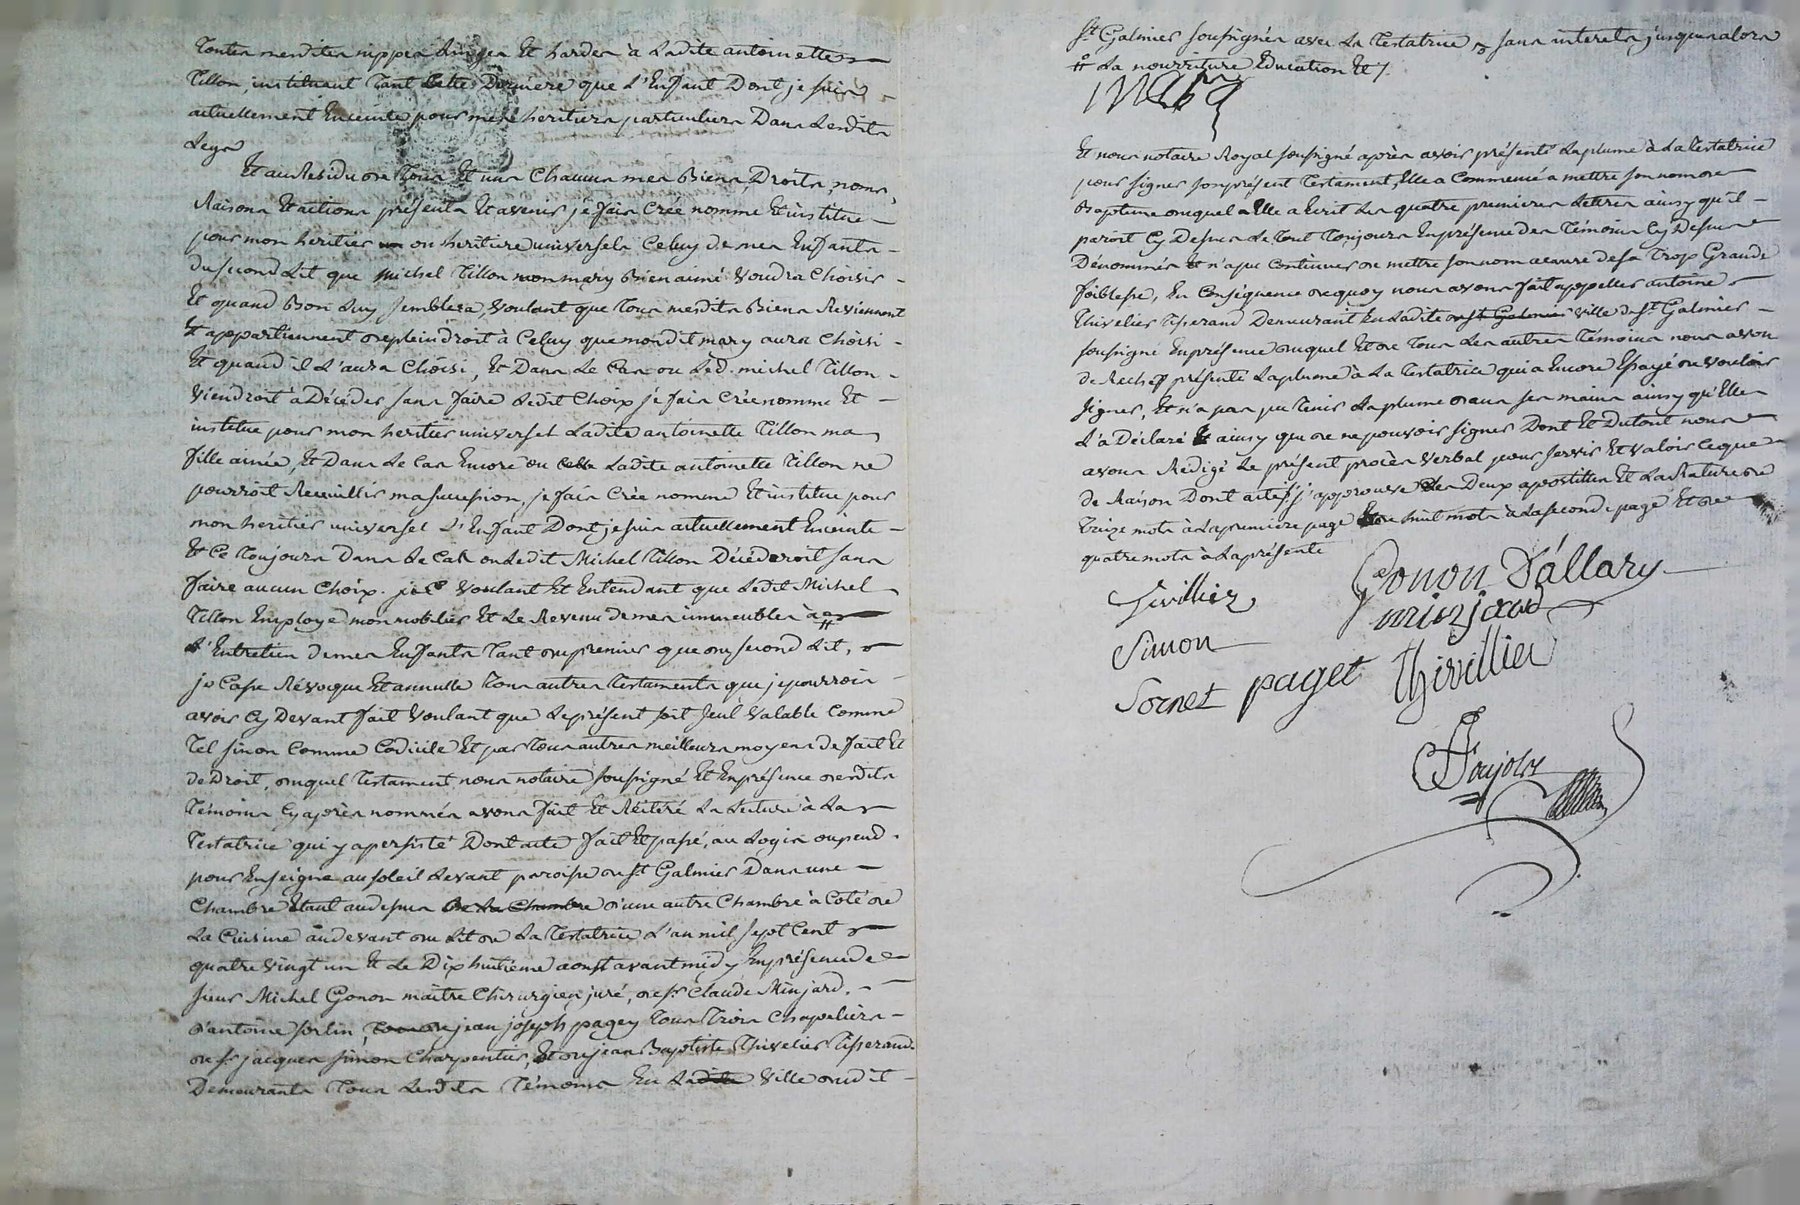 toutes mesdites nippes linges et hardes à ladite antoinette
Tillon, instituant tant cette Derniére que L'Enfant Dont je suis
actuellement Enceinte pour mes heritiers particuliers Dans lesdits
Legs
Et au Residu de tous Et uns Chacuns mes Biens, Droits, noms,
Raisons Et actions présents Et avenir je fais Crée nomme Et institue
pour mon heritier ou heritiere universels Celuy de mes Enfants
du second Lit que Michel Tillon mon mary Bien aimé voudra Choisir
Et quand Bon Luy semblera, voulant que tous mesdits Biens Reviennent
Et appartiennent de plein droit à Celuy que mondit mary aura Choisi
Et quand il L'aura Choisi, Et Dans Le Cas ou Led. michel Tillon
viendroit à Décéder sans faire ledit Choix je fais Crée nomme Et
institue pour mon heritier universel Ladite antoinette Tillon ma
fille ainée, Et Dans Le Cas Encore ou Ladite antoinette Tillon ne
pourroit Recuillir ma succession, je fais Crée nomme Et institue pour
mon heritier universel L'Enfant Dont je suis actuellement Enceinte
Et Ce toujours Dans Le Cas ou Ledit Michel Tillon Décéderoit sans
faire aucun Choix. Voulant Et Entendant que Ledit Michel
Tillon Employe mon mobilier Et Le Revenu de mes immeubles à
L'Entretien de mes Enfants tant du premier que du second Lit,
je Casse Révoque Et annulle tous autres testaments que je pourrois
avoir Cy Devant fait voulant que Le présent soit seul valable Comme
tel sinon Comme Codicile Et par tous autres meilleurs moyens de fait Et
de Droit, duquel testament nous notaire soussigné Et En présence desdits
témoins Cy après nommés avons fait Et Réiteré La Lecture à La
Testatrice qui y a persisté Dont acte fait Et passé, au Logis ou pend
pour Enseigne au soleil Levant paroisse de St Galmier Dans une
Chambre Etant au dessus de La Chambre d'une autre Chambre à Coté de
La Cuisine au devant du Lit de La Testatrice L'an mil sept Cent
quatre vingt un Et Le Dix huitième aoust avant midy En présence de
sieur Michel Gonon maître Chirurgien juré, de sr Claude Minjard,
d'antoine sorlin, jean joseph pagey tous trois Chapeliers
de sr jacques simon Charpentier, Et de jean Baptiste Thivelier Tisserand
Demeurants tous Lesdits Témoins En Ladite ville dudit
St Galmier soussignés avec La Testatrice sans interets jusques alors
La nourriture Education Et
Et nous notaire Royal soussigné après avoir présenté La plume à La Testatrice
pour signer son présent Testament, Elle a Commencé à mettre son nom de
Bapteme duquel Elle a Ecrit Les quatre premieres Lettres ainsy qu'il
paroit Cy Dessus Le tout toujours En présence des Témoins Cy Dessus
Dénommés Et n'a pu Continuer de mettre son nom a cause de sa Trop Grande
foiblesse, En Conséquence dequoy nous avons fait appeller antoine
Thivelier Tisserand Demeurant En Ladite ville de St Galmier
soussigné En présence duquel Et de tous Les autres Témoins nous avons
de Rechef présenté La plume à La Testatrice qui a Encore Essayé de vouloir
signer, Et n'a pas pu tenir La plume dans ses mains ainsy qu'Elle
L'a Déclaré Et ainsy que de ne pouvoir signer Dont Et Du tout nous
avons Rédigé Le présent procès verbal pour servir Et valoir Ceque
de Raison Dont acte j'approuve Les Deux apostilles Et La Rature de
treize mots à La premiere page Et de huit mots à La seconde page Et de
quatre mots à La présente
Gonon D'allary
Tivillier
minjard
Simon
Sornet paget Thivillier